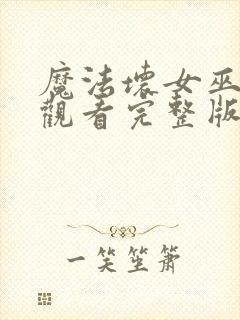 魔法壞女巫
觀看完整版
一笑笙簫